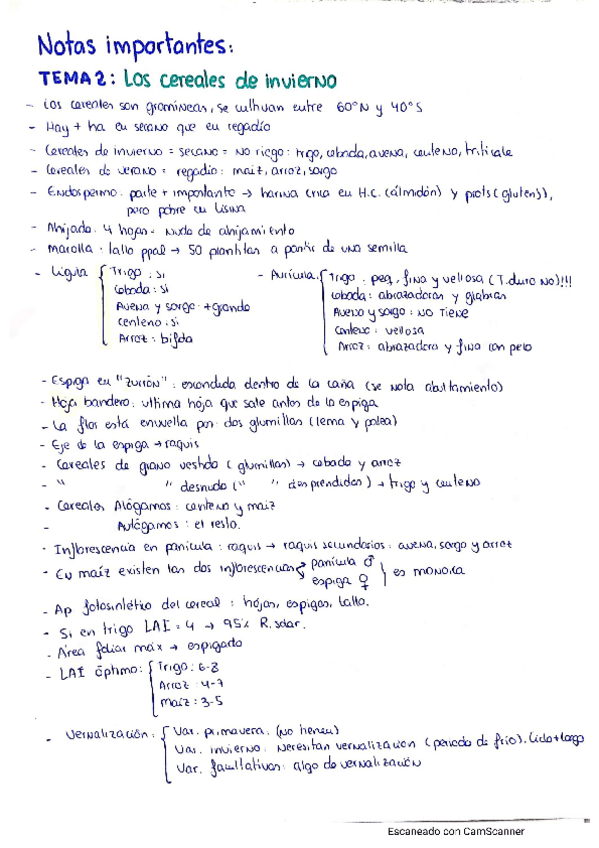 Notas importantes:
TEMA 2: Los cereales de invierno
- Los cereales son gramíneas, se cultivan entre 60°N y 40°S
- Hay + ha en secano que en regadío
- Cereales de invierno = secano = NO riego: trigo, cebada, avena, centeno, triticale
- Cereales de verano = regadío: maíz, arroz, sorgo
- Endospermo: parte + importante → harina (rica en H.C. (almidón) y prots (gluten)),
pero pobre en lisina
- Ahijado: 4 hojas - Nudo de ahijamiento
- Macolla: tallo ppal → 50 plantitas a partir de una semilla
- Lígula { Trigo: si
Cebada: si
Avena y sorgo: + grande
Centeno: si
Arroz: bífida
- Aurícula: { Trigo: peq, fina y vellosa (T. duro NO)!!!
Cebada: abrazadoras y glabras
Avena y sorgo: NO tiene
Centeno: vellosa
Arroz: abrazadora y fina con pelo
- Espiga en "zurrón": escondida dentro de la caña (se nota abultamiento)
- Hoja bandera: última hoja que sale antes de la espiga
- La flor está envuelta por dos glumillas (lema y palea)
- Eje de la espiga → raquis
- Cereales de grano vestido (glumillas) → cebada y arroz
- " " desnudo (" " desprendidas) → trigo y centeno
- Cereales Alógamos: centeno y maíz
- Autógamos: el resto.
- Inflorescencia en panícula: raquis → raquis secundarios: avena, sorgo y arroz
- En maíz existen las dos inflorescencias panícula ♂
espiga ♀ } es monoica
- Ap fotosintético del cereal: hojas, espigas, tallo.
- Si en trigo LAI = 4 → 95% R. solar.
- Área foliar máx → espigado
- LAI óptimo: { Trigo: 6-8
Arroz: 4-7
Maíz: 3-5
- Vernalización: { Var. primavera: (no tienen)
Var. invierno: Necesitan vernalización (periodo de frío). Ciclo + largo
Var. facultativas: algo de vernalización
Escaneado con CamScanner